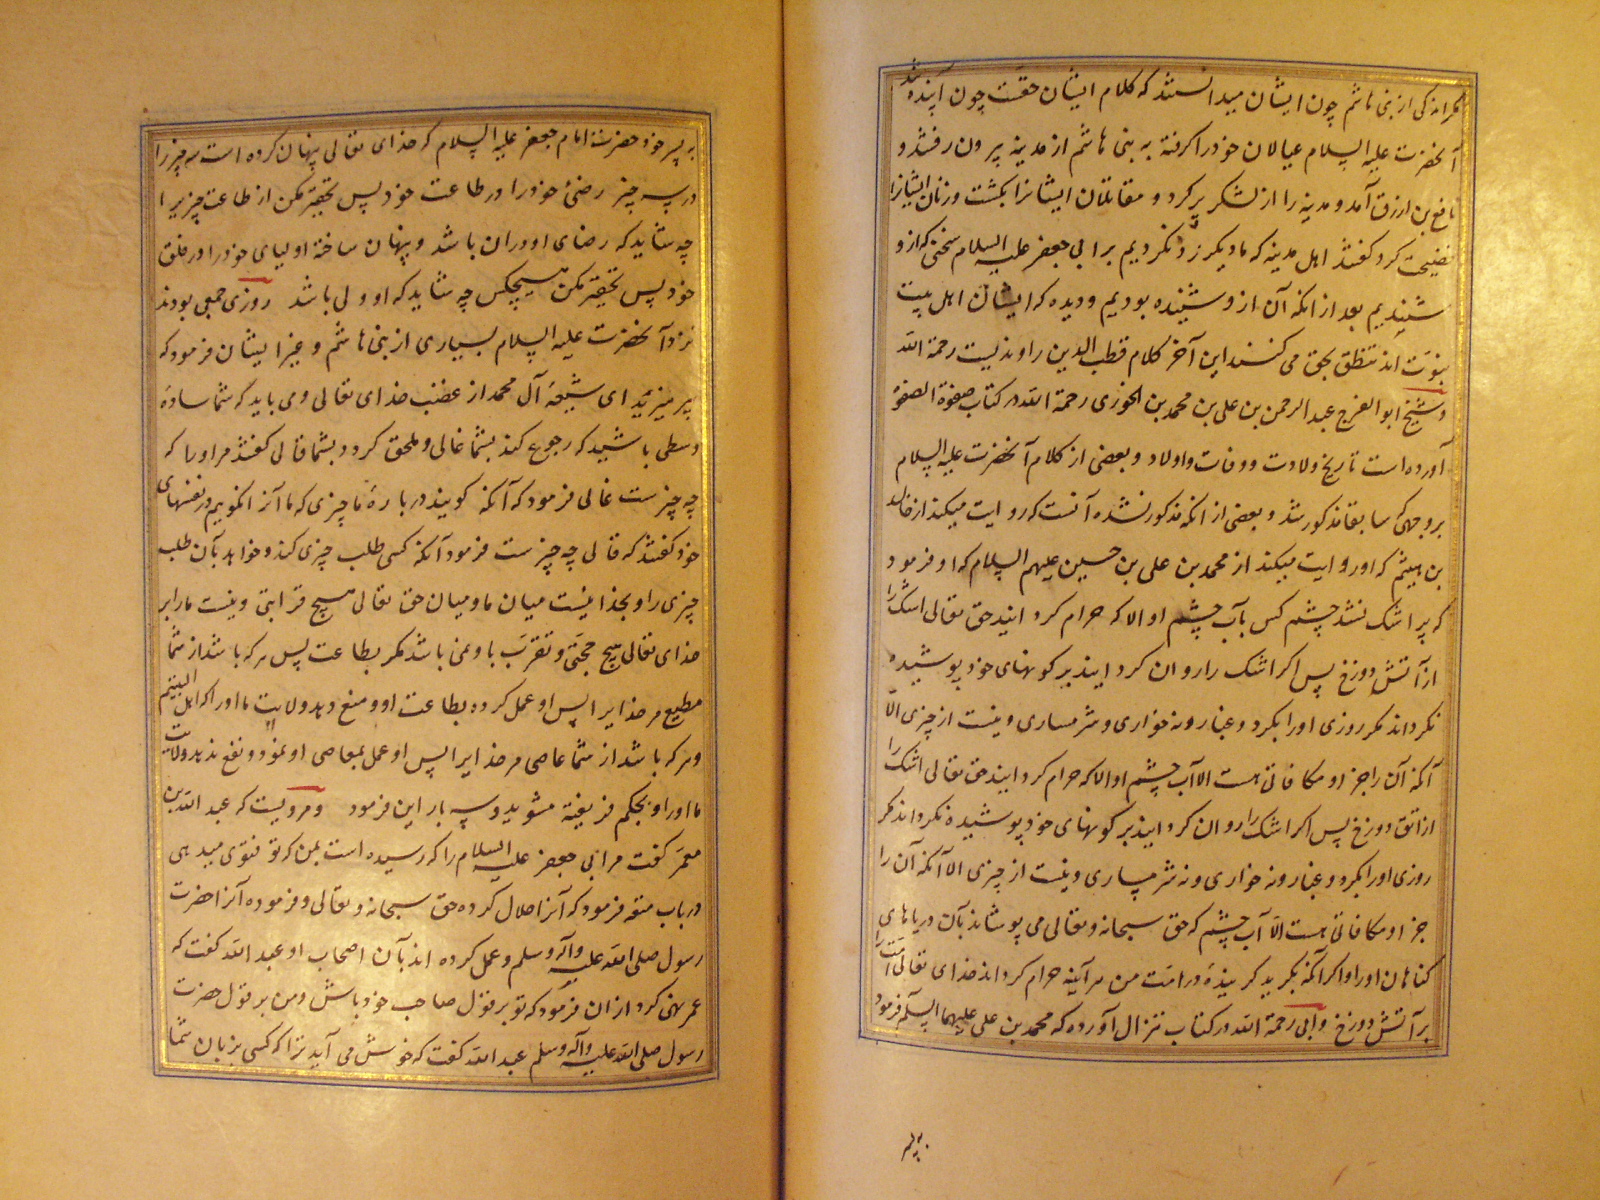 مگر اندکی از بنی هاشم چون ایشان میدانستند که کلام ایشان حقست چون آینده شد
آنحضرت علیه السلام عیالان خود را گرفته به بنی هاشم از مدینه بیرون رفتند و
نافع بن ازرق آمد و مدینه را از لشکر پر کرد و مقاتلان ایشانرا بکشت و زنان ایشانرا
فضیحت کرد گفتند اهل مدینه که ما دیگر رد نکردیم بر ابی جعفر علیه السلام سخنی که از و
شنیدیم بعد از انکه آن از و شنیده بودیم و دیده که ایشان اهل بیت
نبوت اند تنطق بحق می کنند این آخر کلام قطب الدین راوندیست رحمة الله
و شیخ ابو الفرج عبد الرحمن بن علی بن محمد بن الجوزی رحمة الله در کتاب صفوة الصفوة
آورده است تاریخ ولادت و وفات و اولاد و بعضی از کلام آنحضرت علیه السلام
بر وجهی که سابقا مذکور شد و بعضی از انکه مذکور نشده آنست که روایت میکند از خالد
بن هیثم که او روایت میکند از محمد بن علی بن حسین علیهم السلام که او فرمود
که پر اشک نشد چشم کس بآب چشم او الا که حرام کردانید حق تعالی اشک را
از آتش دوزخ پس اکر اشک را روان کردانید بر کونهای خود پوشیده
نکرداند مکر روزی او را بکرد و غبار و نه خواری و شرمساری و نیست از چیزی الا
آنکه آن را جز او مکافاتی هست الا آب چشم او الا که حرام کردانید حق تعالی اشک را
از اتق دوزخ پس اکر اشک را روان کردانید بر کونهای خود پوشیده نکرداند مکر
روزی او را بکرد و غبار و نه خواری و نه شرمساری و نیست از چیزی الا آنکه آن را
جز او مکافاتی هست الا آب چشم که حق سبحانه و تعالی می پوشاند بآن دریاهای
کناهان او را و اکر آنکه بکرید کرینده در امت من هر آینه حرام کرداند خدای تعالی امت را
بر آتش دوزخ و آبی رحمة الله در کتاب نثر الدر آورده که محمد بن علی علیهما السلم فرمود
به پسر خود حضرت امام جعفر علیه السلام که خدای تعالی پنهان کرده است سه چیز را
در سه چیز رضیٔ خود را در طاعت خود پس تحقیر مکن از طاعت چیزی را
چه شاید که رضای او در ان باشد و پنهان ساخته اولیای خود را در خلق
خود پس تحقیر مکن هیچکس چه شاید که او ولی باشد روزی جمعی بودند
نزد آنحضرت علیه السلام بسیاری از بنی هاشم و غیر ایشان فرمود که
پرهیزید ای شیعهٔ آل محمد از غضب خدای تعالی و می باید که شما ساده
وسطی باشید که رجوع کند بشما غالی و ملحق کردد بشما قالی گفتند مر او را که
چه چیزست غالی فرمود که آنکه کویند در بارهٔ ما چیزی که ما آنرا نکوییم در نفسهای
خود گفتند که قالی چه چیزست فرمود آنکه کسی طلب چیزی کند و خواهد بآن طلب
چیزی را و بخدا نیست میان ما و میان حق تعالی هیچ قرابتی و نیست ما را بر
خدای تعالی هیچ حجتی و تقرب با و نمی باشد مکر بطاعت پس هر که باشد از شما
مطیع مر خدایرا پس او عمل کرده بطاعت او و منع دهد ولایت ما او را اکر اهل البیتیم
و هر که باشد از شما عاصی مر خدایرا پس او عمل بمعاصی او نمود و نفع ندهد ولایت
ما او را و بحکم فریفته مشوید و سه بار این فرمود و مرویست که عبد الله بن
معمر گفت مر ابی جعفر علیه السلام را که رسیده است بمن که تو فتوی میدهی
در باب متعه فرمود که آنرا حلال کرده حق سبحانه و تعالی و فرموده آنرا حضرت
رسول صلی الله علیه و آله وسلم و عمل کرده اند بآن اصحاب او عبد الله گفت که
عمر نهی کرد از ان فرمود که تو بر قول صاحب خود باش و من بر قول حضرت
رسول صلی الله علیه و آله وسلم عبد الله گفت که خوش می آید ترا که کسی بزبان شما